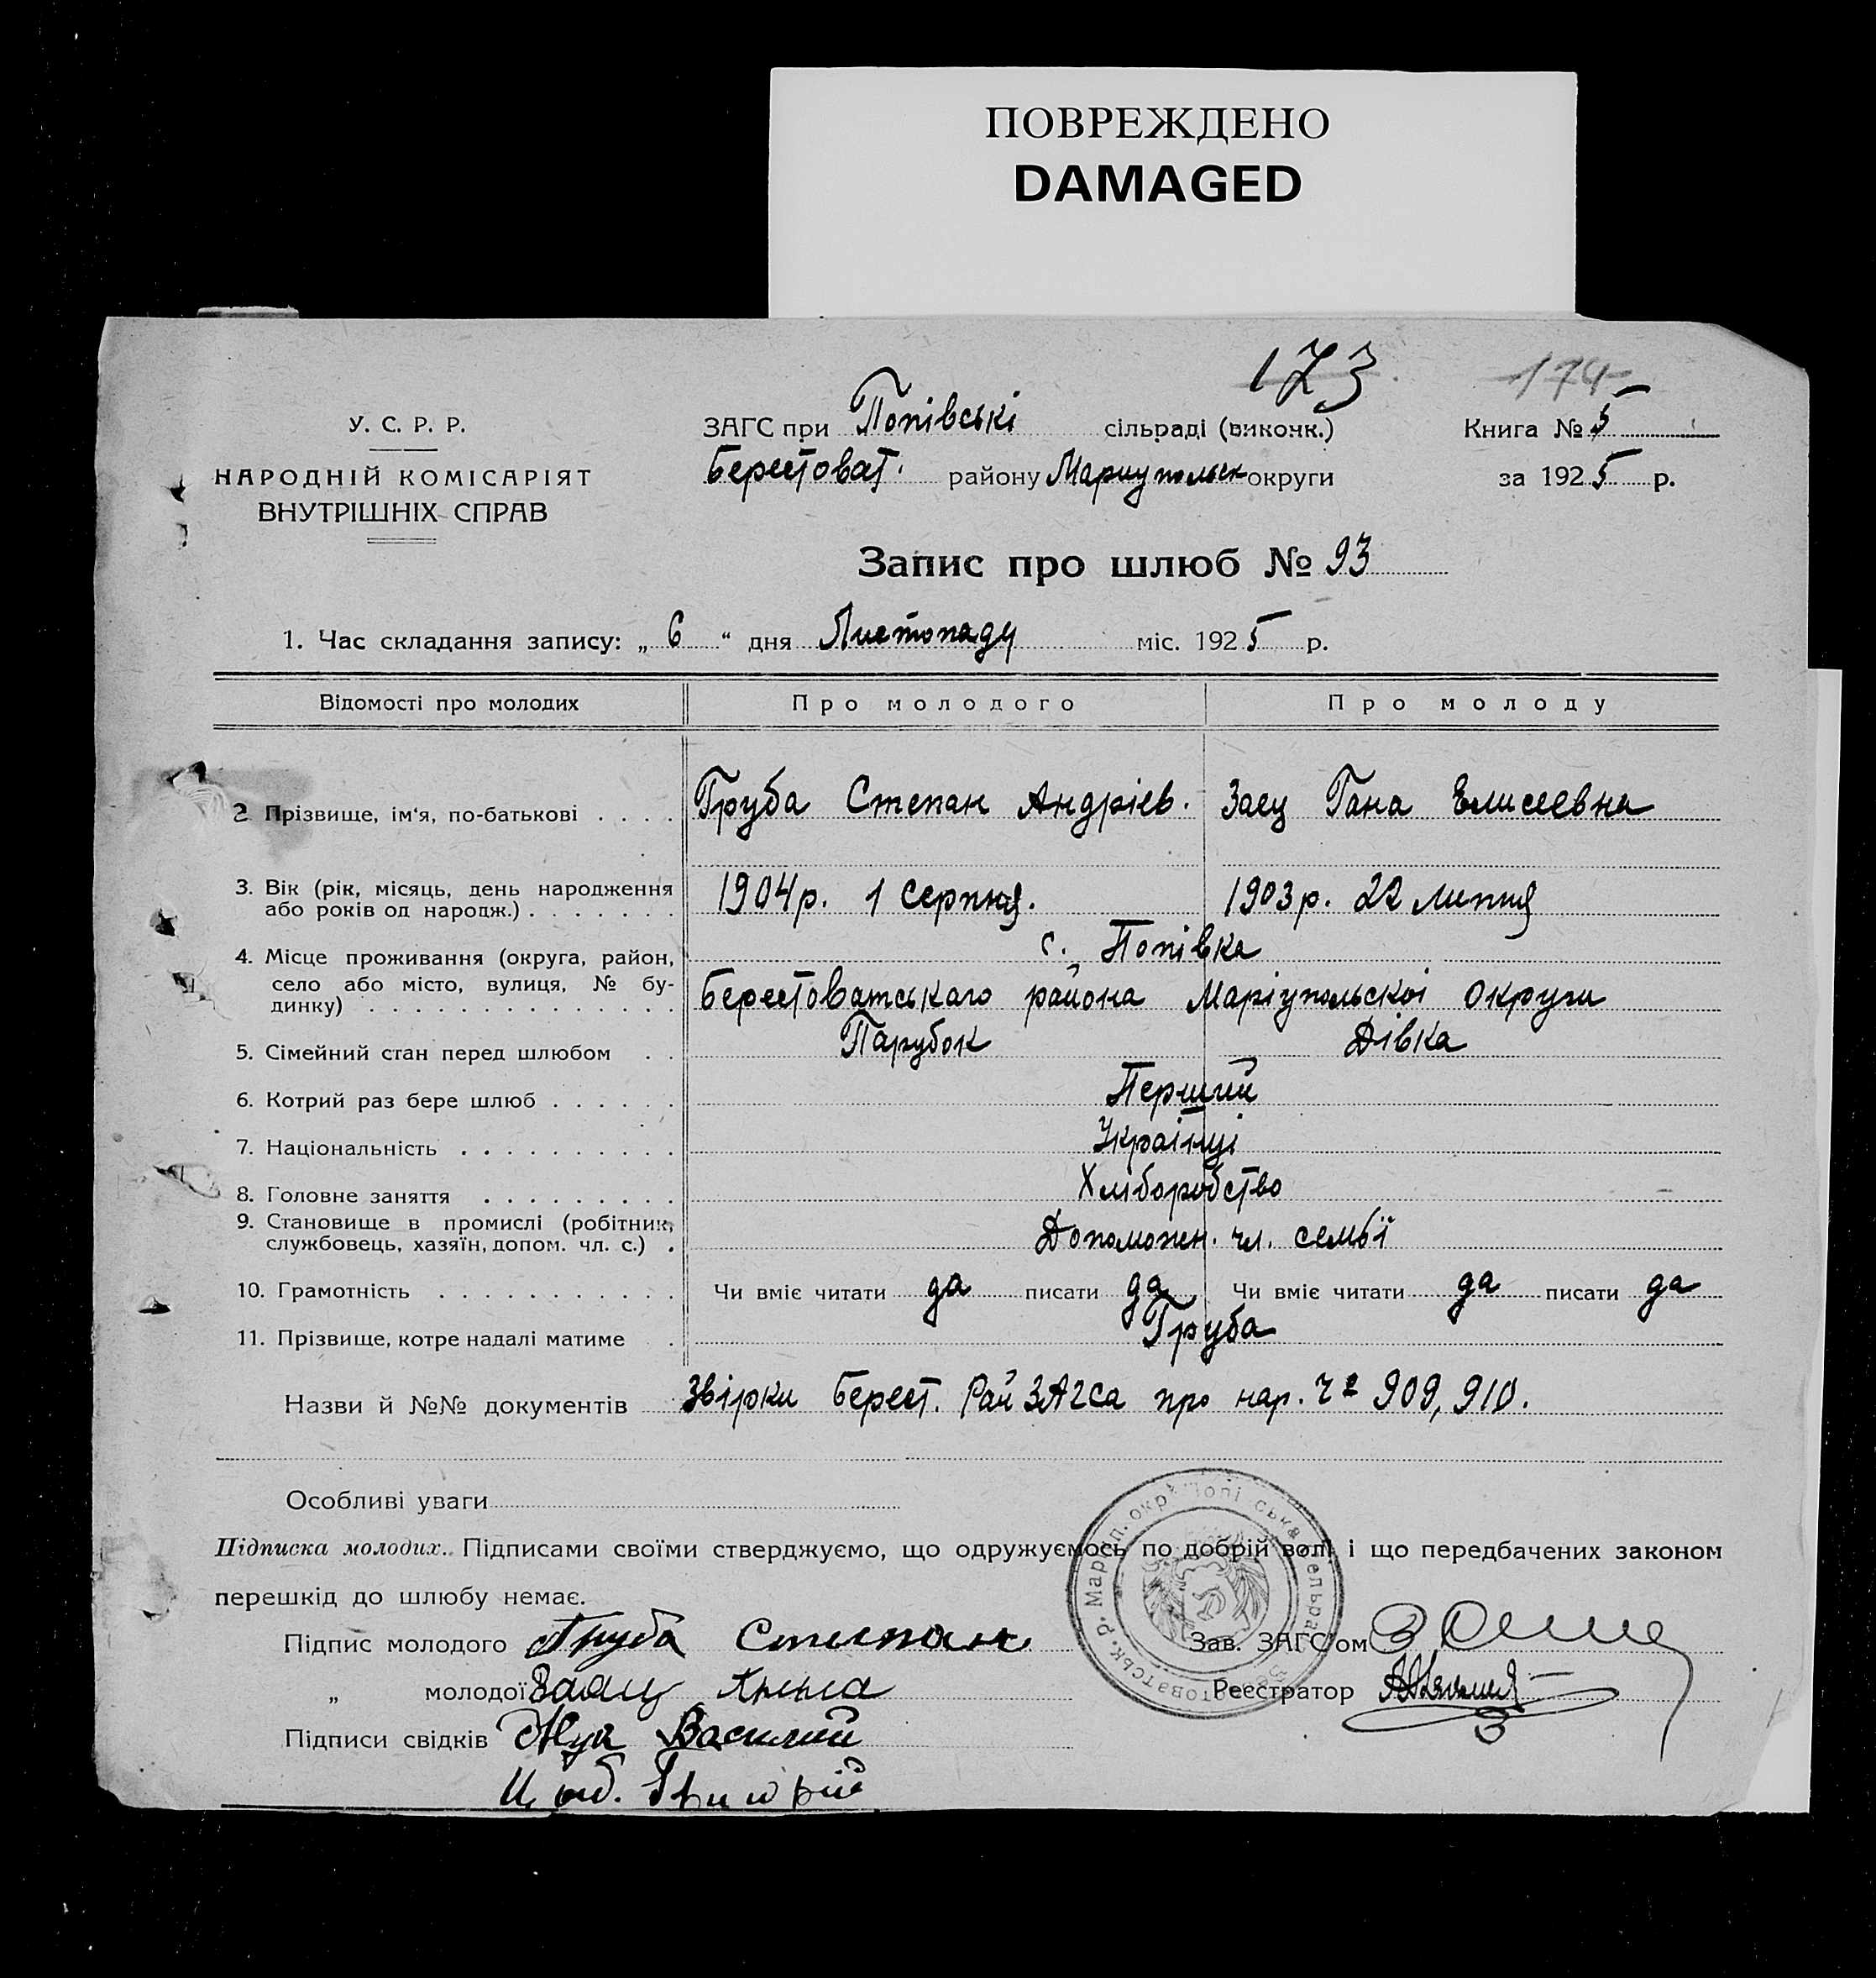 ПОВРЕЖДЕНО
DAMAGED
173
174
У. С. Р. Р.
НАРОДНІЙ КОМІСАРІЯТ
ВНУТРІШНІХ СПРАВ
ЗАГС при Попівські сільраді (виконк.)
Берестоват. району Мариупольск округи
Книга № 5
за 1925 р.
Запис про шлюб № 93
1. Час складання запису: „ 6 “ дня Листопаду міс. 1925 р.
Відомості про молодих Про молодого Про молоду
2 Прізвище, ім'я, по-батькові . . . . Груба Степан Андріев. Заец Гана Елисеевна
3. Вік (рік, місяць, день народження
або років од народж.) . . . . . . . 1904 р. 1 Серпня. 1903 р. 22 Липня
с. Попівка
4. Місце проживання (округа, район,
село або місто, вулиця, № бу-
динку) . . . . . . . . . . . . . . Берестоватськаго района Маріупольскоі Округи
5. Сімейний стан перед шлюбом . . Парубок Дівка
6. Котрий раз бере шлюб . . . . . . Перший
7. Національність . . . . . . . . . . Украінці
8. Головне заняття . . . . . . . . . Хліборобство
9. Становище в промислі (робітник,
службовець, хазяїн, допом. чл. с.) . Допоможн. чл. семьї
10. Грамотність . . . . . . . . . . . Чи вміє читати да писати да Чи вміє читати да писати да
11. Прізвище, котре надалі матиме . Груба
Назви й №№ документів Звірки Берест. Рай ЗАГСа про нар. Ч° 909, 910.
Особливі уваги
Підписка молодих. Підписами своїми стверджуємо, що одружуємось по добрій волі і що передбачених законом
перешкід до шлюбу немає.
Підпис молодого Груба Степан
Зав. ЗАГС'ом
„ молодої Заяц
Реєстратор
Підписи свідків Василий
Григорій